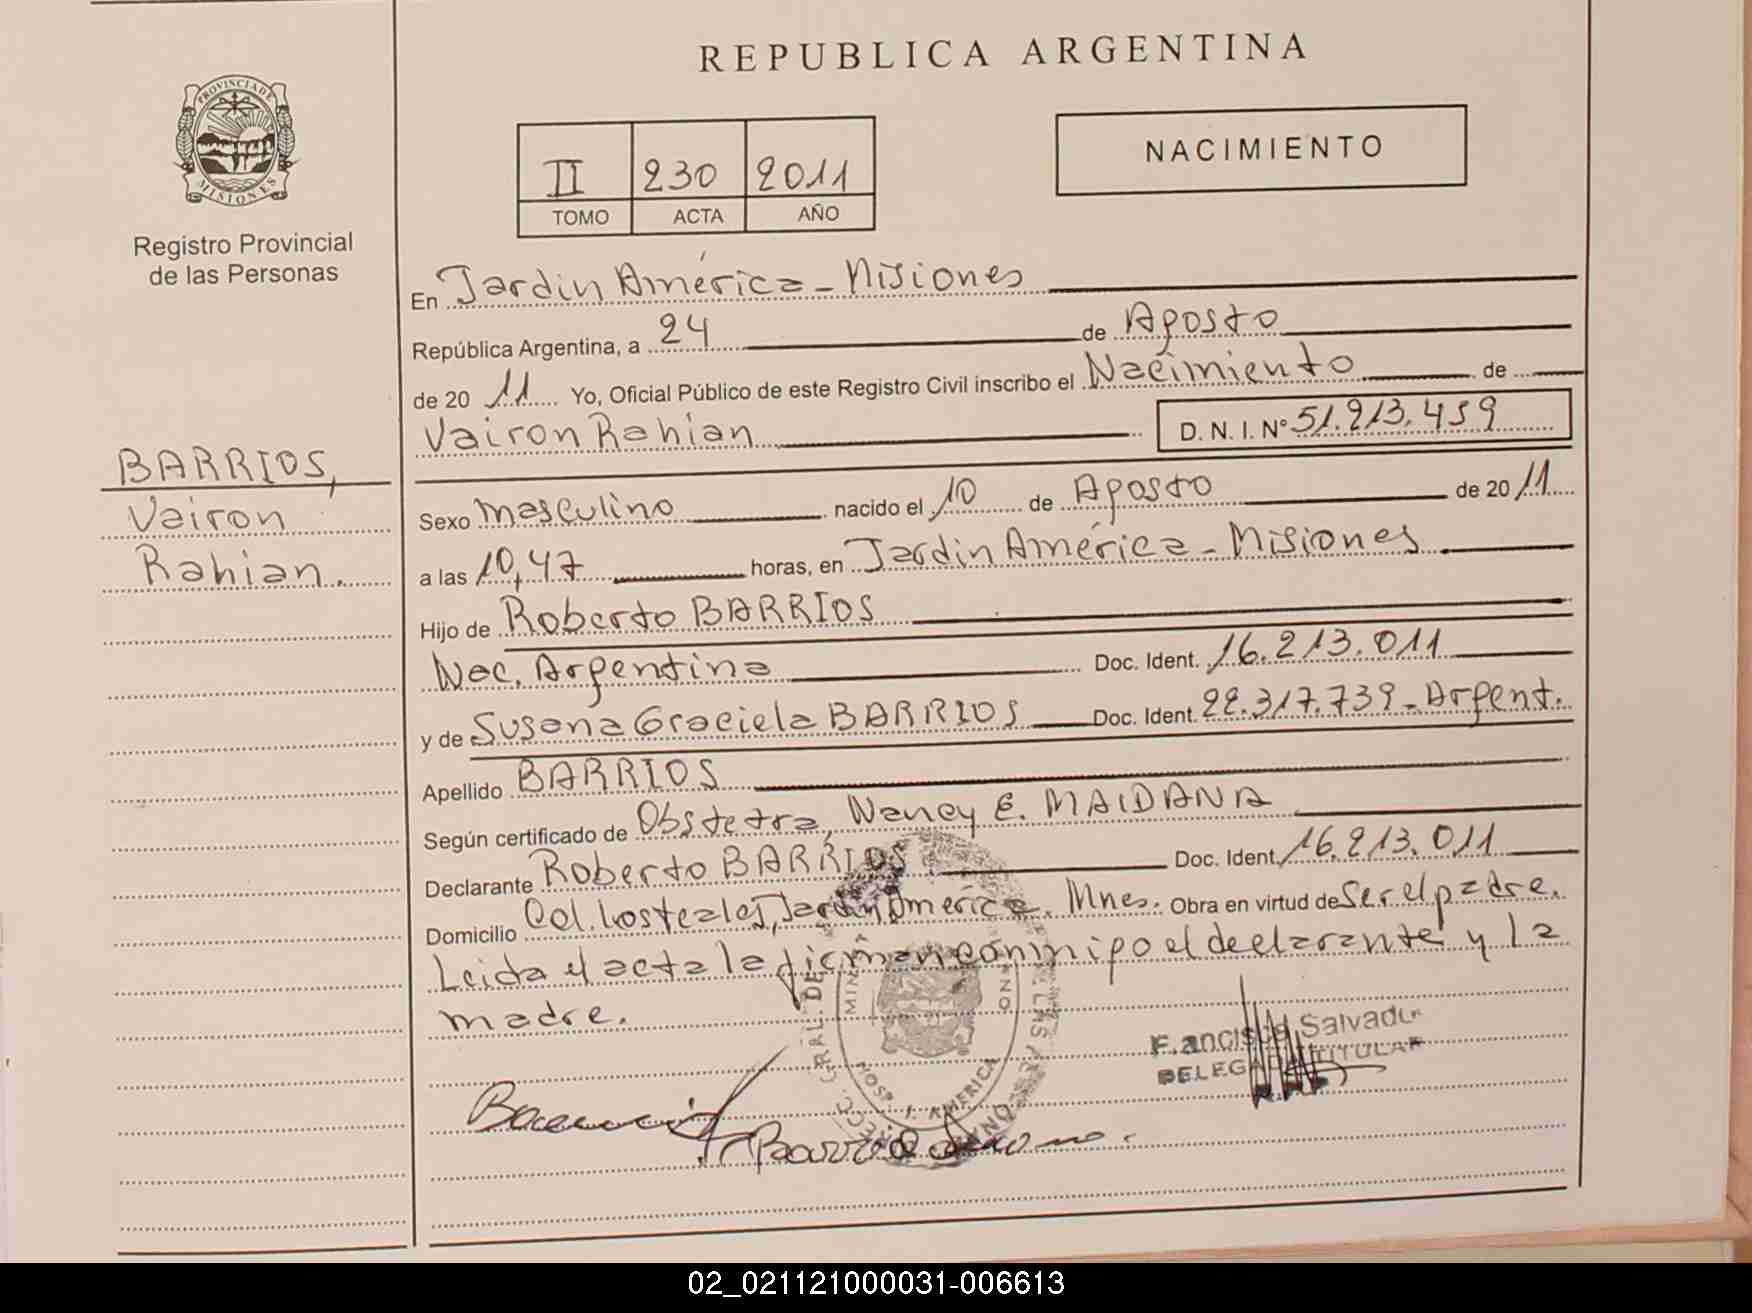 REPUBLICA ARGENTINA
PROVINCIA DE
MISIONES
Registro Provincial
de las Personas
II 230 2011
TOMO ACTA AÑO
NACIMIENTO
En Jardin América - Misiones
República Argentina, a 24 de Agosto
de 20 11 Yo, Oficial Público de este Registro Civil inscribo el Nacimiento de
Vairon Rahian D. N. I. Nº 51.213.459
BARRIOS,
Vairon
Rahian.
Sexo masculino nacido el 10 de Agosto de 20 11
a las 10,47 horas, en Jardin América - Misiones
Hijo de Roberto BARRIOS
Nac. Argentina Doc. Ident. 16.213.011
y de Susana Graciela BARRIOS Doc. Ident. 22.317.739 - Argent.
Apellido BARRIOS
Según certificado de Obstetra, Nancy E. MAIDANA
Declarante Roberto BARRIOS Doc. Ident. 16.213.011
Domicilio Col. Jardin América. Mnes. Obra en virtud de Ser el padre.
Leida el acta la firman conmigo el declarante y la
madre.
Francisco Salvador
DELEGADO TITULAR
HOSP. J. AMERICA
02_021121000031-006613